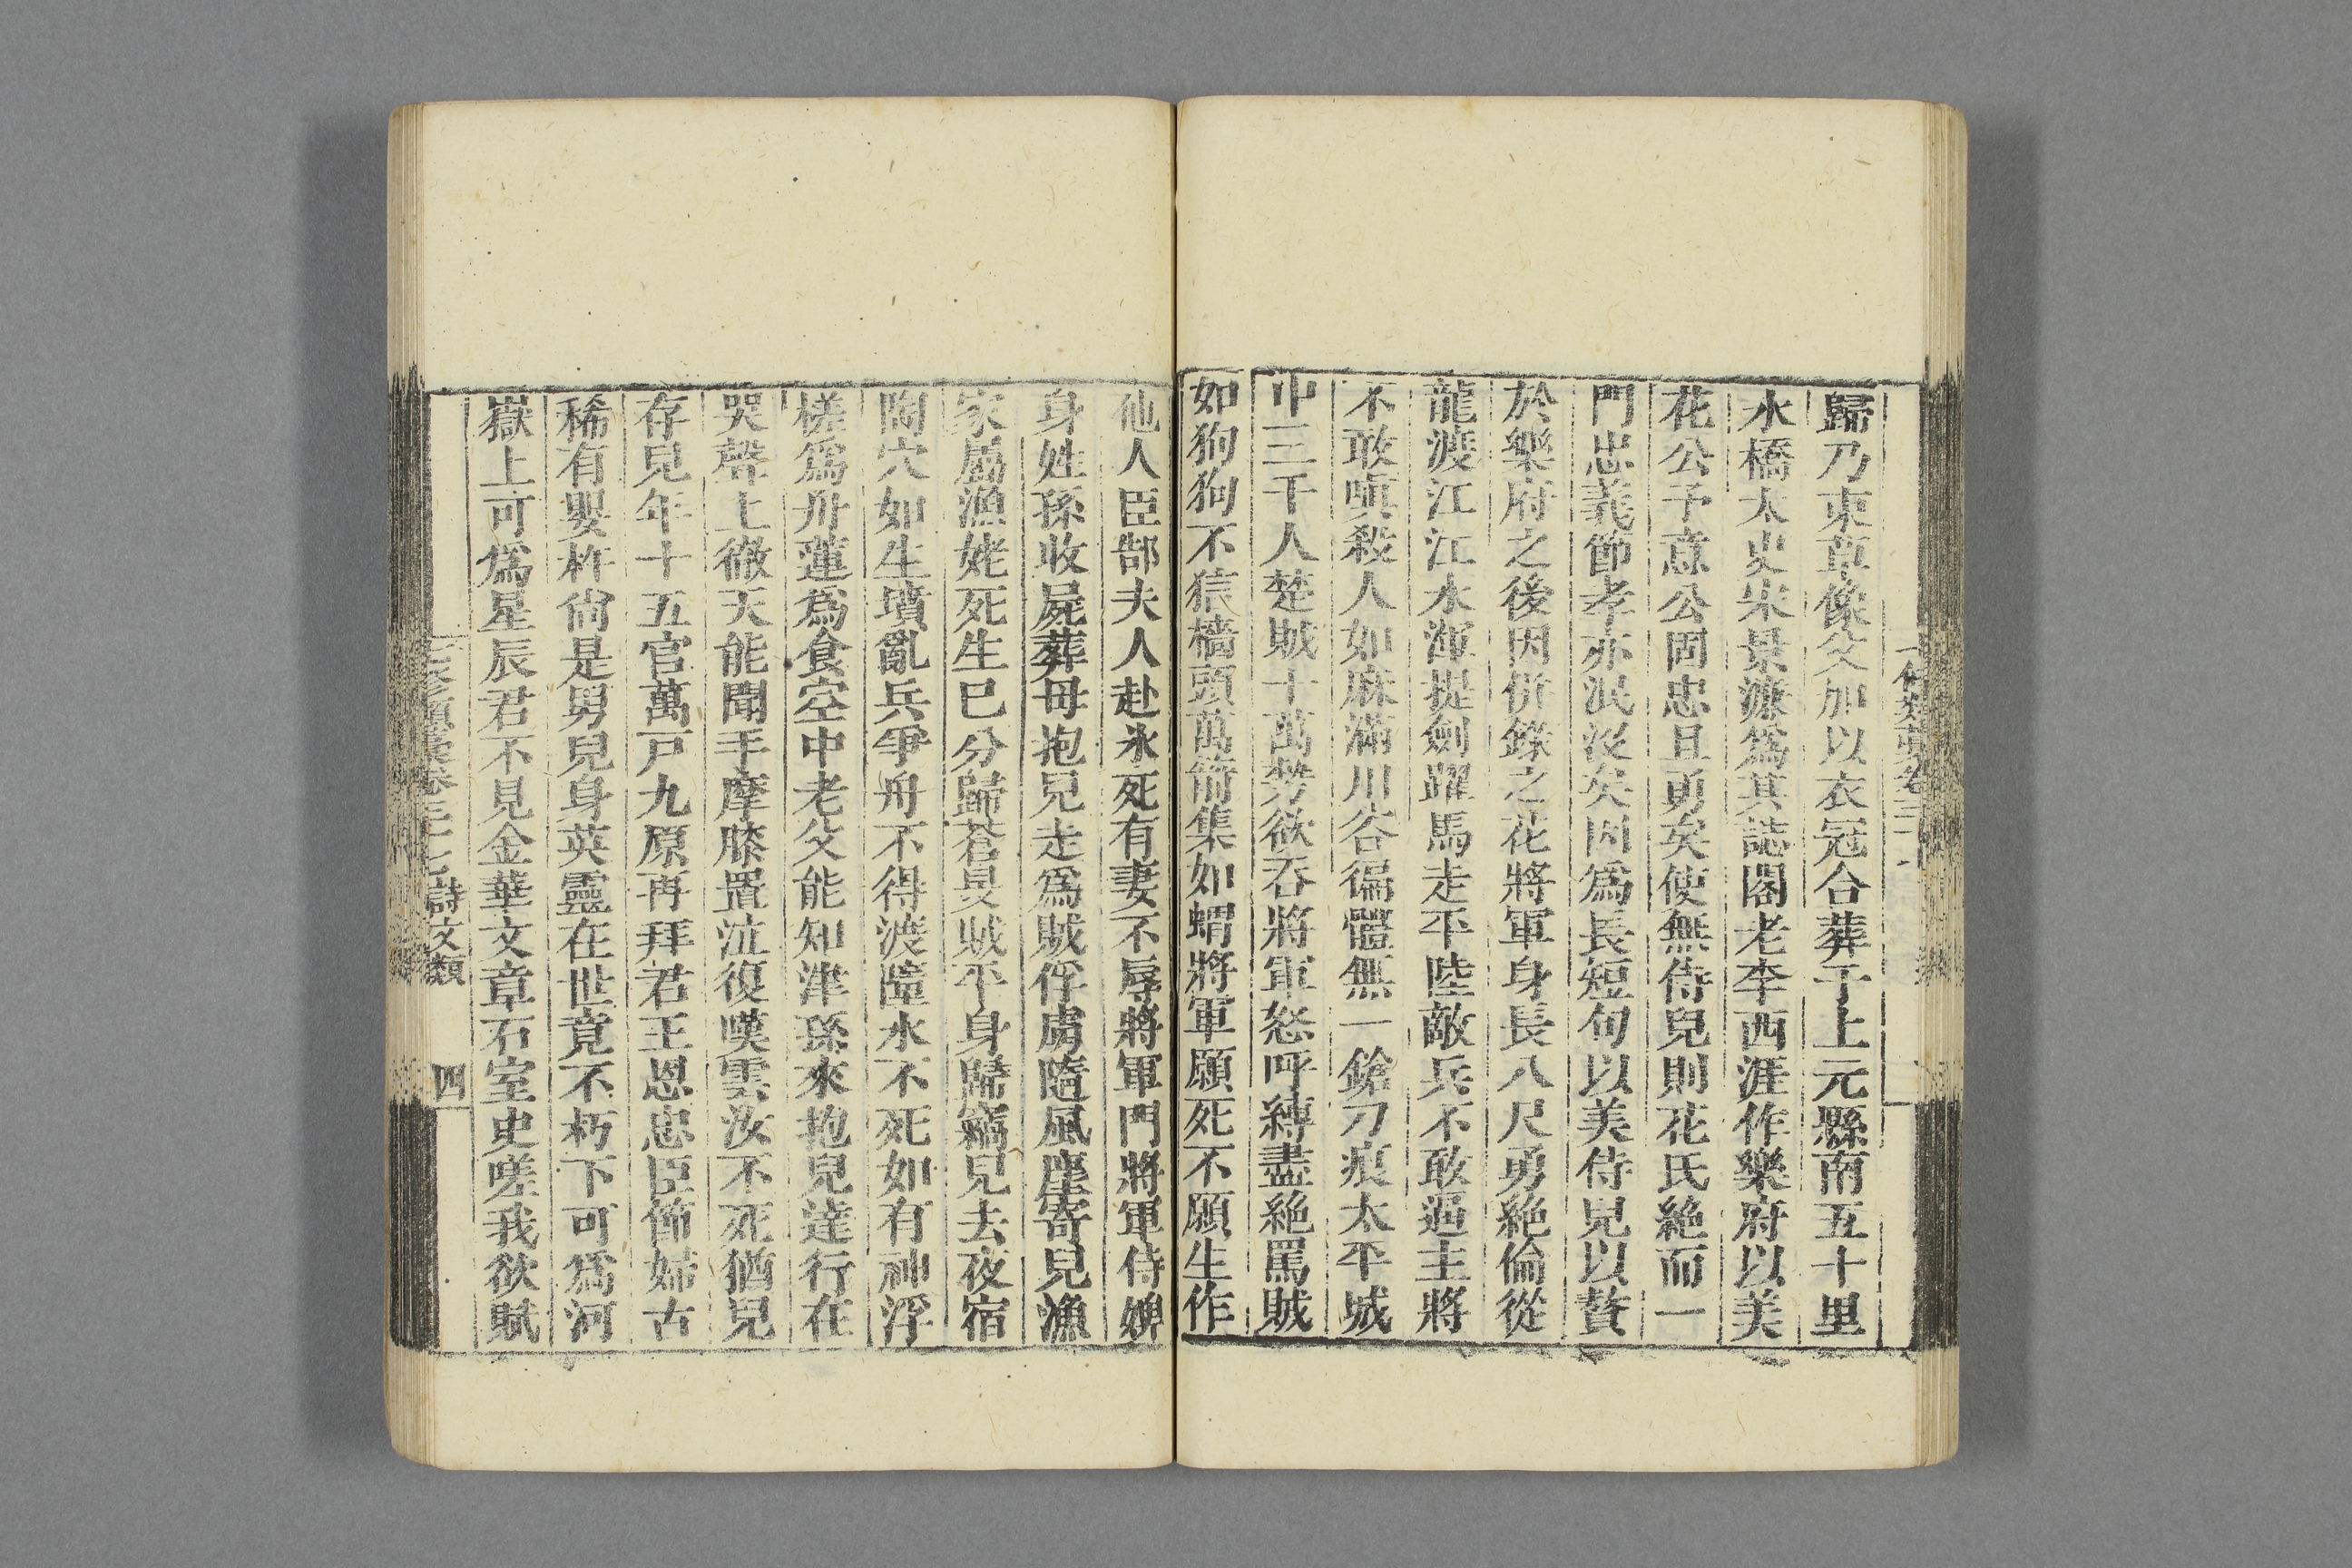 歸乃束草像父加以衣冠合葬于上元縣南五十里
水橋太史宋景濂爲其誌閣老李西涯作樂府以美
花公予意公固忠且勇矣使無侍兒則花氏絶而一
門忠義節孝亦泯沒矣因爲長短句以美侍兒以贅
於樂府之後因併錄之花將軍身長八尺勇絶倫從
龍渡江江水渾提劍躍馬走平陸敵兵不敢逼主將
不敢嗔殺人如麻滿川谷徧體無一鎗刀痕太平城
中三千人楚賊十萬勢欲吞將軍怒呼縛盡絶罵賊
如狗狗不狺檣頭萬箭集如蝟將軍願死不願生作
他人臣郜夫人赴氷死有妻不辱將軍門將軍侍婢
身姓孫收屍葬母抱兒走爲賊俘虜隨風塵寄兒漁
家屬漁姥死生已分歸蒼旻賊平身歸竊兒去夜宿
陶穴如生墳亂兵爭舟不得渡墮水不死如有神浮
槎爲舟蓮爲食空中老父能知津孫來抱兒達行在
哭聲上徹天能聞手摩膝置泣復嘆雲汝不死猶兒
存兒年十五官萬戶九原再拜君王恩忠臣節婦古
稀有嬰杵尙是男兒身英靈在世竟不朽下可爲河
嶽上可爲星辰君不見金華文章石室史嗟我欲賦
七修類藁卷三七 詩文類 四